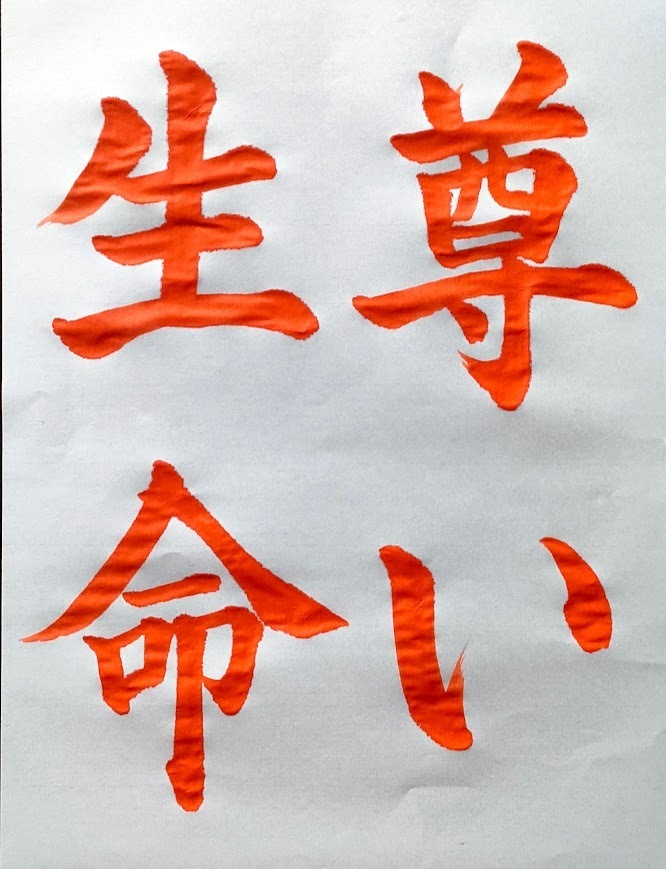 尊い
生命